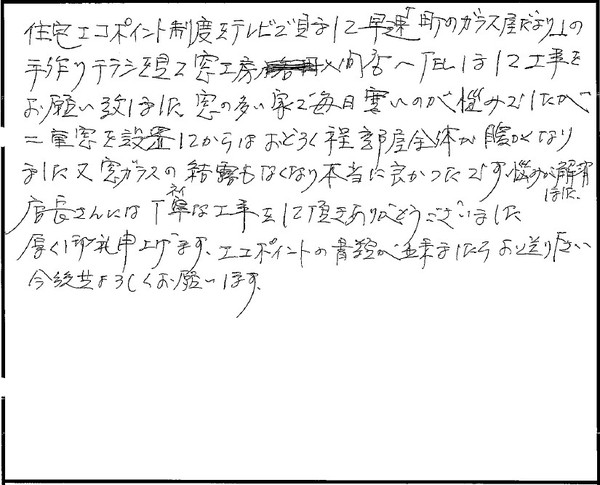 住宅エコポイント制度をテレビで見まして早速「町のガラス屋だより」の
手作りチラシを見て窓工房 へTELしまして工事を
お願い致しました 窓の多い家で毎日寒いのが悩みでしたが
二重窓を設置してからはおどろく程部屋全体が暖かくなり
ました又窓ガラスの結露もなくなり本当に良かったです悩みが解消
しました。
店長さんには丁寧な工事をして頂きありがとうございました
厚く御礼申上げます、エコポイントの書類が出来ましたらお送り下さい
今後共よろしくお願いします。